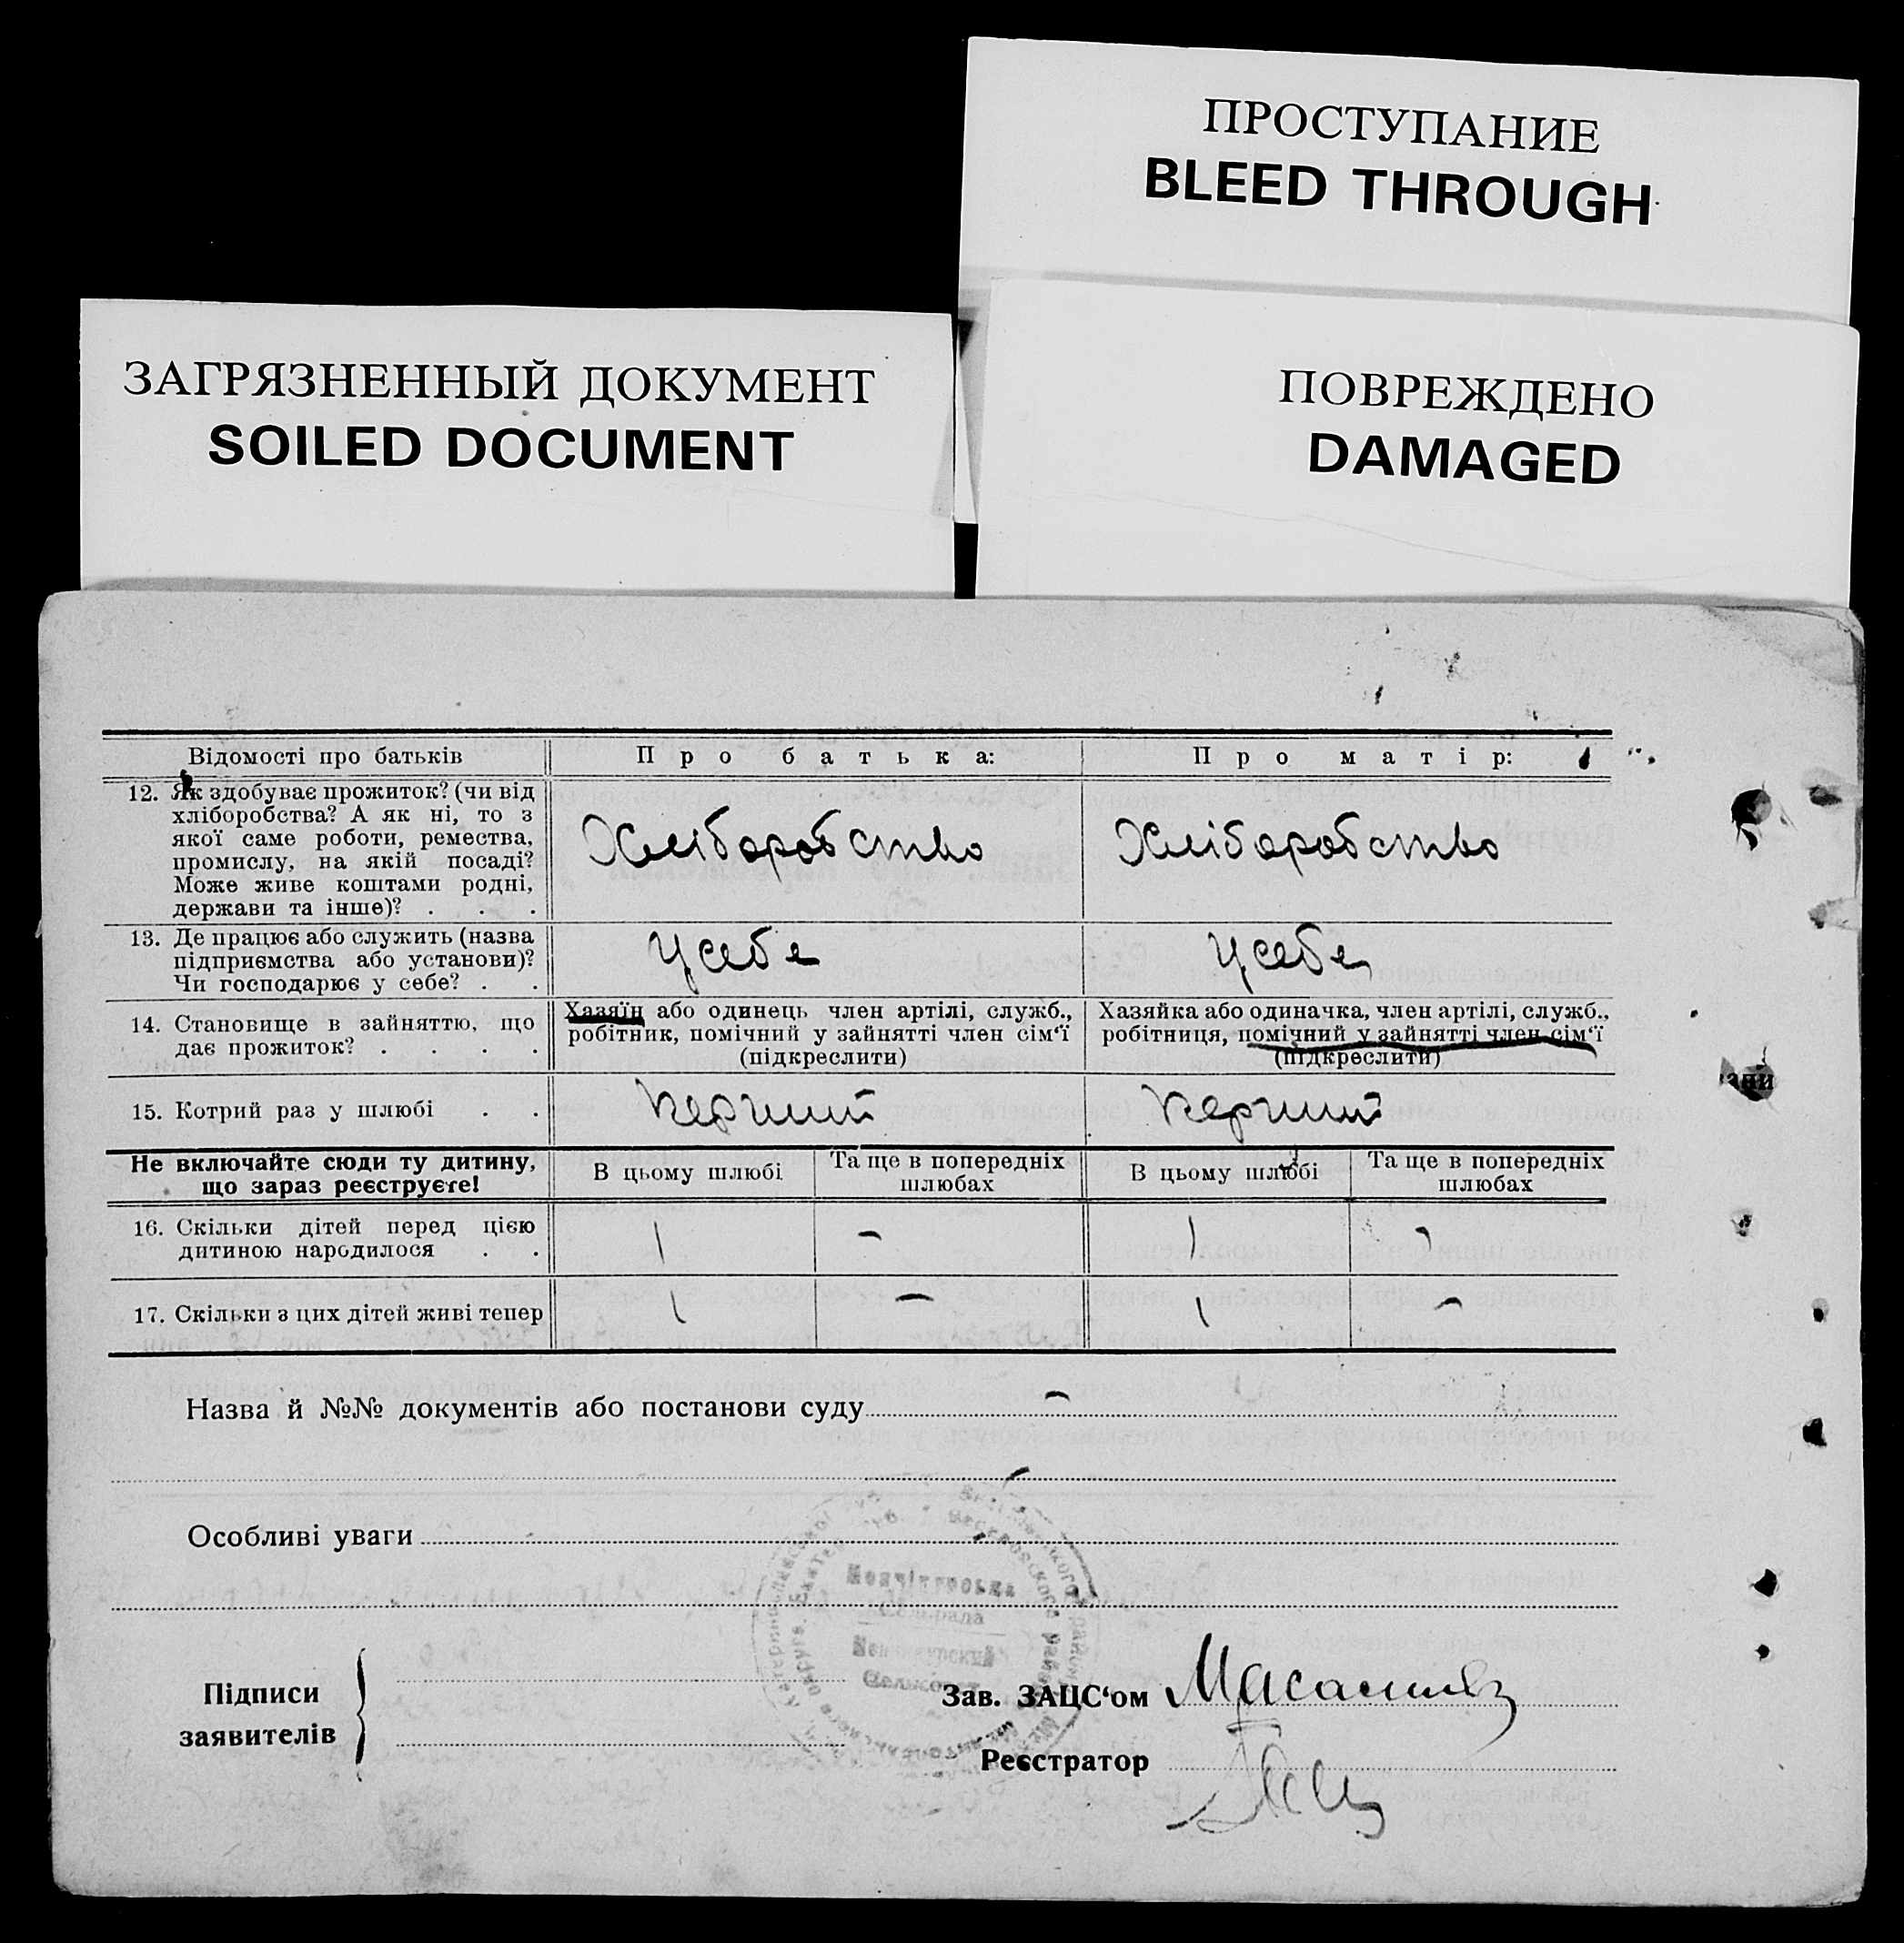 ПРОСТУПАНИЕ
BLEED THROUGH
ЗАГРЯЗНЕННЫЙ ДОКУМЕНТ
SOILED DOCUMENT
ПОВРЕЖДЕНО
DAMAGED
Відомості про батьків
Про батька:
Про матір:
12. Як здобуває прожиток? (чи від
хліборобства? А як ні, то з
якої саме роботи, ремества,
промислу, на якій посаді?
Може живе коштами родні,
держави та інше)? . . .
Хліборобство
Хліборобство
13. Де працює або служить (назва
підприємства або установи)?
Чи господарює у себе? . .
У себе
У себе
14. Становище в зайняттю, що
дає прожиток? . . . .
Хазяїн або одинець член артілі, служб.,
робітник, помічний у зайнятті член сім‘ї
(підкреслити)
Хазяйка або одиначка, член артілі, служб.,
робітниця, помічний у зайнятті член сім‘ї
(підкреслити)
15. Котрий раз у шлюбі . .
Перший
Перший
Не включайте сюди ту дитину,
що зараз реєструєте!
В цьому шлюбі
Та ще в попередніх
шлюбах
В цьому шлюбі
Та ще в попередніх
шлюбах
16. Скільки дітей перед цією
дитиною народилося . .
1 – 1 –
17. Скільки з цих дітей живі тепер
1 – 1 –
Назва й №№ документів або постанови суду –
Особливі уваги
Підписи
заявителів
Зав. ЗАЦС‘ом
Реєстратор